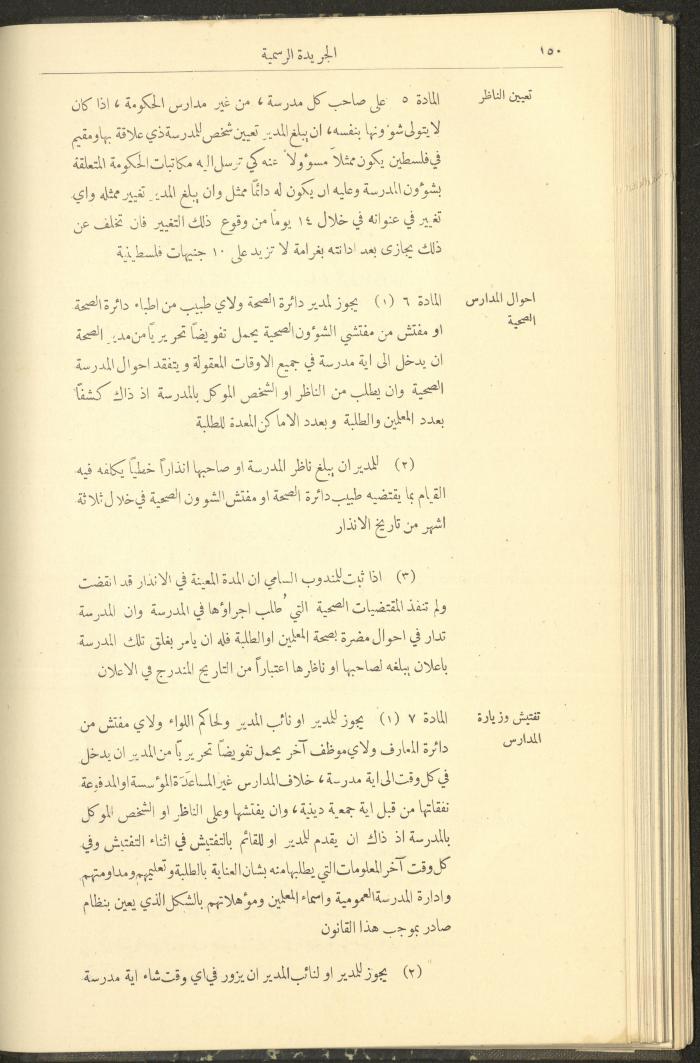 ١٥٠
الجريدة الرسمية
تعيين الناظر
المادة ٥ على صاحب كل مدرسة، من غير مدارس الحكومة، اذا كان
لا يتولى شؤونها بنفسه، ان يبلغ المدير تعيين شخص للمدرسة ذي علاقة بها ومقيم
في فلسطين يكون ممثلاً مسؤولاً عنه كي ترسل اليه مكاتبات الحكومة المتعلقة
بشؤون المدرسة وعليه ان يكون له دائماً ممثل وان يبلغ المدير تغيير ممثله واي
تغيير في عنوانه في خلال ١٤ يوماً من وقوع ذلك التغيير فان تخلف عن
ذلك يجازى بعد ادانته بغرامة لا تزيد على ١٠ جنيهات فلسطينية
احوال المدارس
الصحية
المادة ٦ (١) يجوز لمدير دائرة الصحة ولاي طبيب من اطباء دائرة الصحة
او مفتش من مفتشي الشؤون الصحية يحمل تفويضاً تحريرياً من مدير الصحة
ان يدخل الى اية مدرسة في جميع الاوقات المعقولة ويتفقد احوال المدرسة
الصحية وان يطلب من الناظر او الشخص الموكل بالمدرسة اذ ذاك كشفاً
بعدد المعلمين والطلبة وبعدد الاماكن المعدة للطلبة
(٢) للمدير ان يبلغ ناظر المدرسة او صاحبها انذاراً خطياً يكلفه فيه
القيام بما يقتضيه طبيب دائرة الصحة او مفتش الشوون الصحية في خلال ثلاثة
اشهر من تاريخ الانذار
(٣) اذا ثبت للمندوب السامي ان المدة المعينة في الانذار قد انقضت
ولم تنفذ المقتضيات الصحية التي طُلب اجراؤها في المدرسة وان المدرسة
تدار في احوال مضرة بصحة المعلمين او الطلبة فله ان يامر بغلق تلك المدرسة
باعلان يبلغه لصاحبها او ناظرها اعتباراً من التاريخ المندرج في الاعلان
تفتيش وزيارة
المدارس
المادة ٧ (١) يجوز للمدير او نائب المدير ولحاكم اللواء ولاي مفتش من
دائرة المعارف ولاي موظف آخر يحمل تفويضاً تحريرياً من المدير ان يدخل
في كل وقت الى اية مدرسة، خلاف المدارس غير المساعَدة المؤسسة او المدفوعة
نفقاتها من قبل اية جمعية دينية، وان يفتشها وعلى الناظر او الشخص الموكل
بالمدرسة اذ ذاك ان يقدم للمدير او للقائم بالتفتيش في اثناء التفتيش وفي
كل وقت آخر المعلومات التي يطلبها منه بشان العناية بالطلبة وتعليمهم ومداومتهم
وادارة المدرسة العمومية واسماء المعلمين ومؤهلاتهم بالشكل الذي يعين بنظام
صادر بموجب هذا القانون
(٢) يجوز للمدير او لنائب المدير ان يزور في اي وقت شاء اية مدرسة